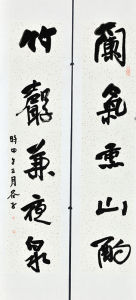 蘭氣熏山酌
竹聲兼夜泉